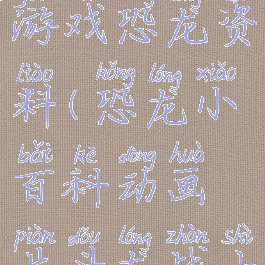 游戏恐龙资
liào kǒng lóng xiǎo
料(恐龙小
bǎi kē dòng huà
百科动画
piàn dòu lóng zhàn shì